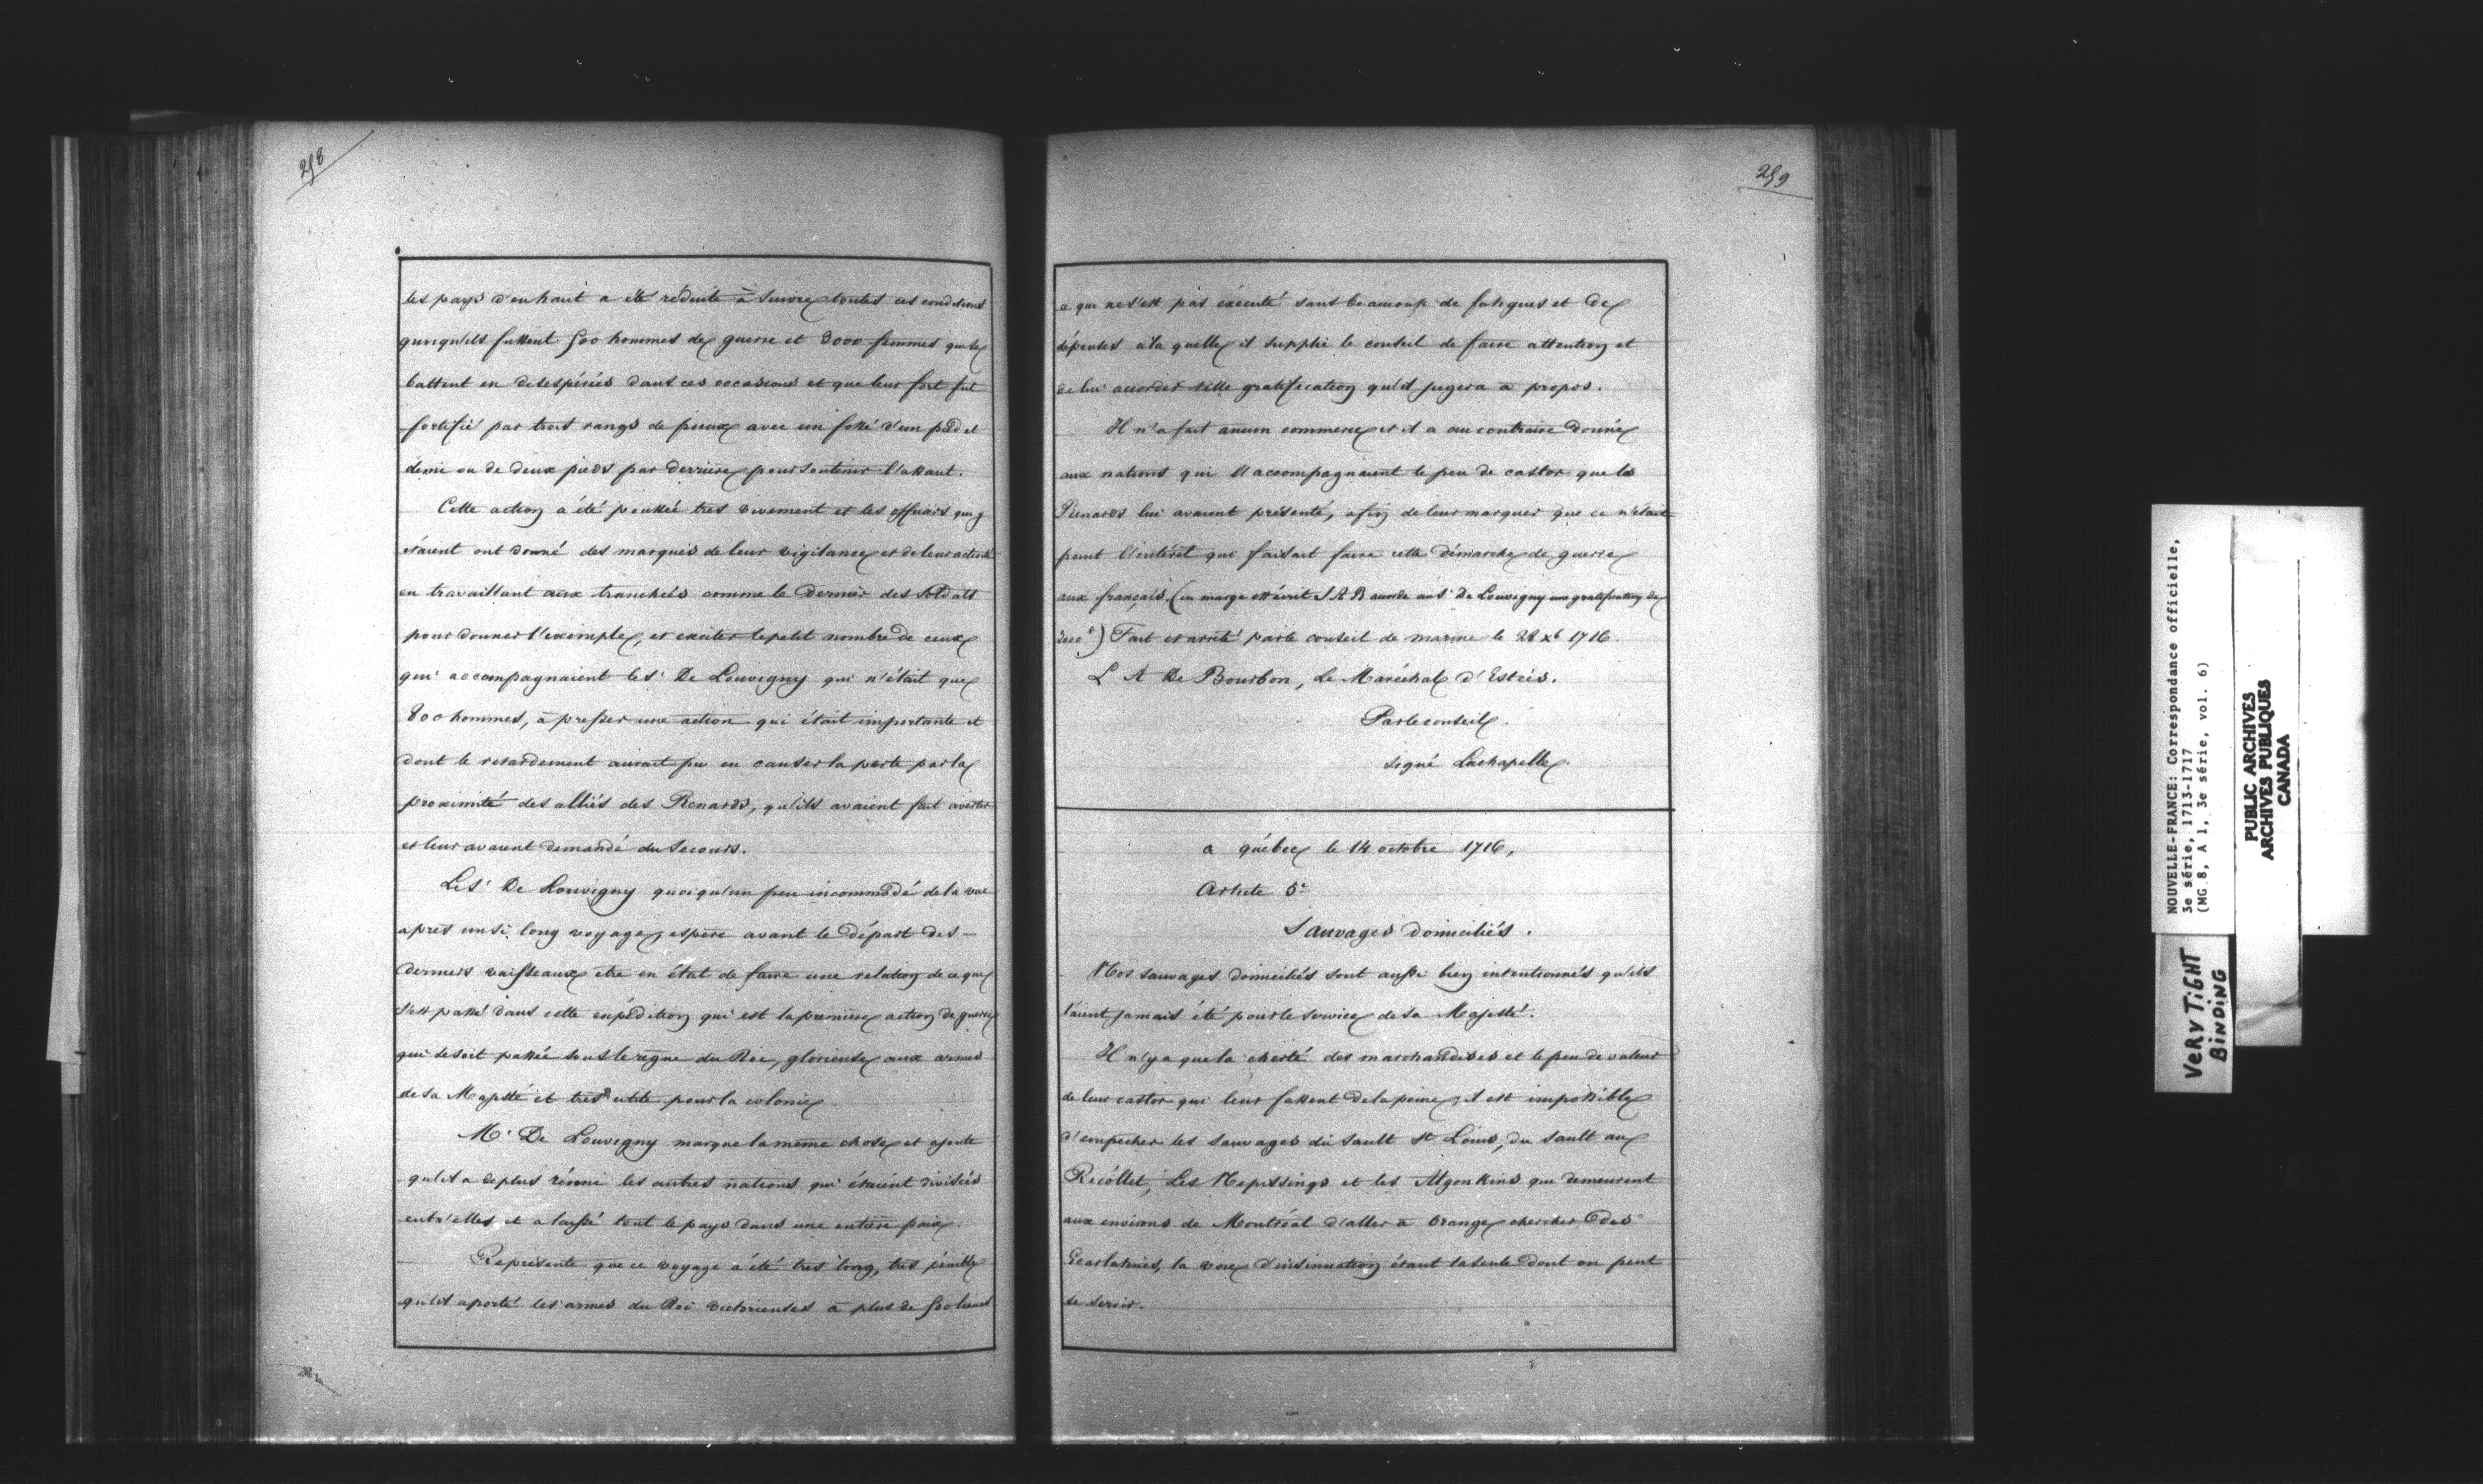 258
les pays d'en haut a été réduite à suivre toutes ces conditions
quoiqu'ils fussent 500 hommes de guerre et 3000 femmes qui se
battent en desespérées dans ces occasions et que leur fort fut
fortifié par trois rangs de pieux avec un fossé d'un pied et
demi ou de deux pieds par derriere pour soutenir l'assaut.
Cette action a été poussée tres vivement et les officiers qui y
étaient ont donné des marques de leur vigilance et de leur activité
en travaillant aux tranchées comme le dernier des soldats
pour donner l'exemple, et exciter le petit nombre de ceux
qui accompagnaient le Sr De Louvigny qui n'était que
800 hommes, à presser une action qui était importante et
dont le retardement aurait pu en causer la perte par la
proximité des alliés des Renards, qu'ils avaient fait avertir
et leur avaient demandé du secours.
Le Sr De Louvigny quoiqu'un peu incommodé de la vue
après un si long voyage, espère avant le départ des
derniers vaisseaux etre en état de faire une relation de ce qui
s'est passé dans cette expédition qui est la premiere action de guerre
qui se soit passée sous le règne du Roi, glorieuse aux armes
de Sa Majesté et très utile pour la colonie
Mr De Louvigny marque la même chose et ajoute
qu'il a de plus réuni les autres nations qui étaient divisées
entr'elles et a laissé tout le pays dans une entière paix.
Représente que ce voyage a été tres long, tres pénible
qu'il a porté les armes du Roi victorieuses à plus de 500 lieues
259
ce qui ne s'est pas exécuté sans beaucoup de fatigues et de
dépenses à la quelle il supplie le conseil de faire attention et
de lui accorder telle gratification qu'il jugera a propos.
Il n'a fait aucun commerce et il a au contraire donné
aux nations qui l'accompagnaient le peu de castor que les
Renards lui avaient présenté, afin de leur marquer que ce n'était
point l'intérêt qui faisait faire cette démarche de guerre
aux français. (en marge est écrit S A R accorde au Sr De Louvigny une gratification de
3000#) Fait et arrêté par le conseil de marine le 28 xb 1716.
L A De Bourbon, Le Maréchal d'Estrées.
Par le conseil.
signé Lachapelle.
a québec le 14 octobre 1716,
Article 5e
Sauvages domiciliés.
Nos sauvages domiciliés sont aussi bien intentionnés qu'ils
l'aient jamais été pour le service de Sa Majesté.
Il n'y a que la cherté des marchandises et le peu de valeur
de leur castor qui leur fassent de la peine, il est impossible
d'empecher les sauvages du Sault St Louis, du Sault au
Recollet, Les Nepissings et les Algonkins qui demeurent
aux environs de Montréal d'aller à Orange chercher des
Ecarlatines, la voie d'insinuation étant la seule dont on peut
se servir.
NOUVELLE-FRANCE: Correspondance officielle,
3e série, 1713-1717
(MG 8, A 1, 3e série, vol. 6)
PUBLIC ARCHIVES
ARCHIVES PUBLIQUES
CANADA
VERY TIGHT
BINDING